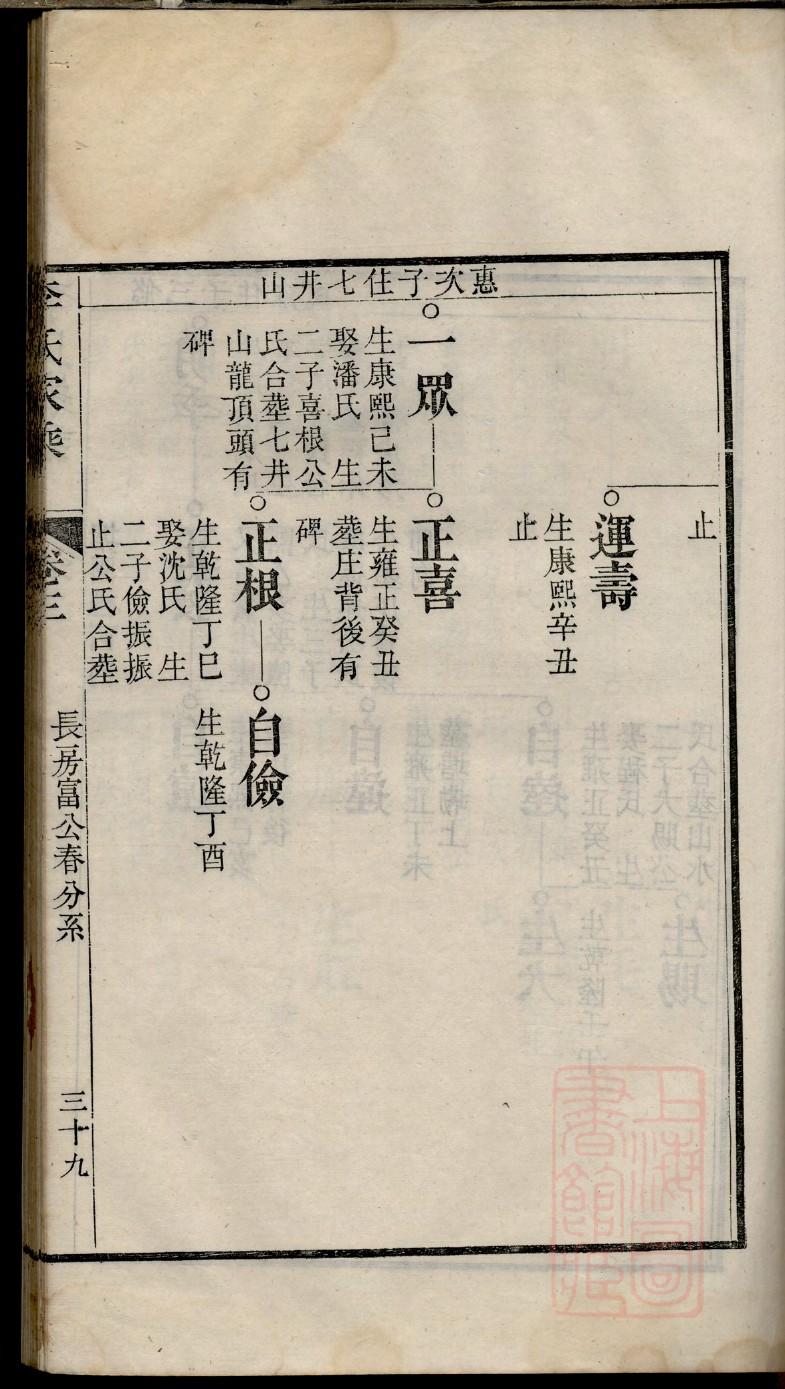 惠次子住七井山
止
運壽
生康熙辛丑
止
一眾
生康熙己未
娶潘氏　生
二子喜根公
氏合塟七井
山龍頂頭有
碑
正喜
生雍正癸丑
塟庄背後有
碑
正根
生乾隆丁巳
娶沈氏　生
二子儉振振
止公氏合塟
自儉
生乾隆丁酉
李氏家乘
卷三
長房富公春分系
三十九
上海圖
書館藏